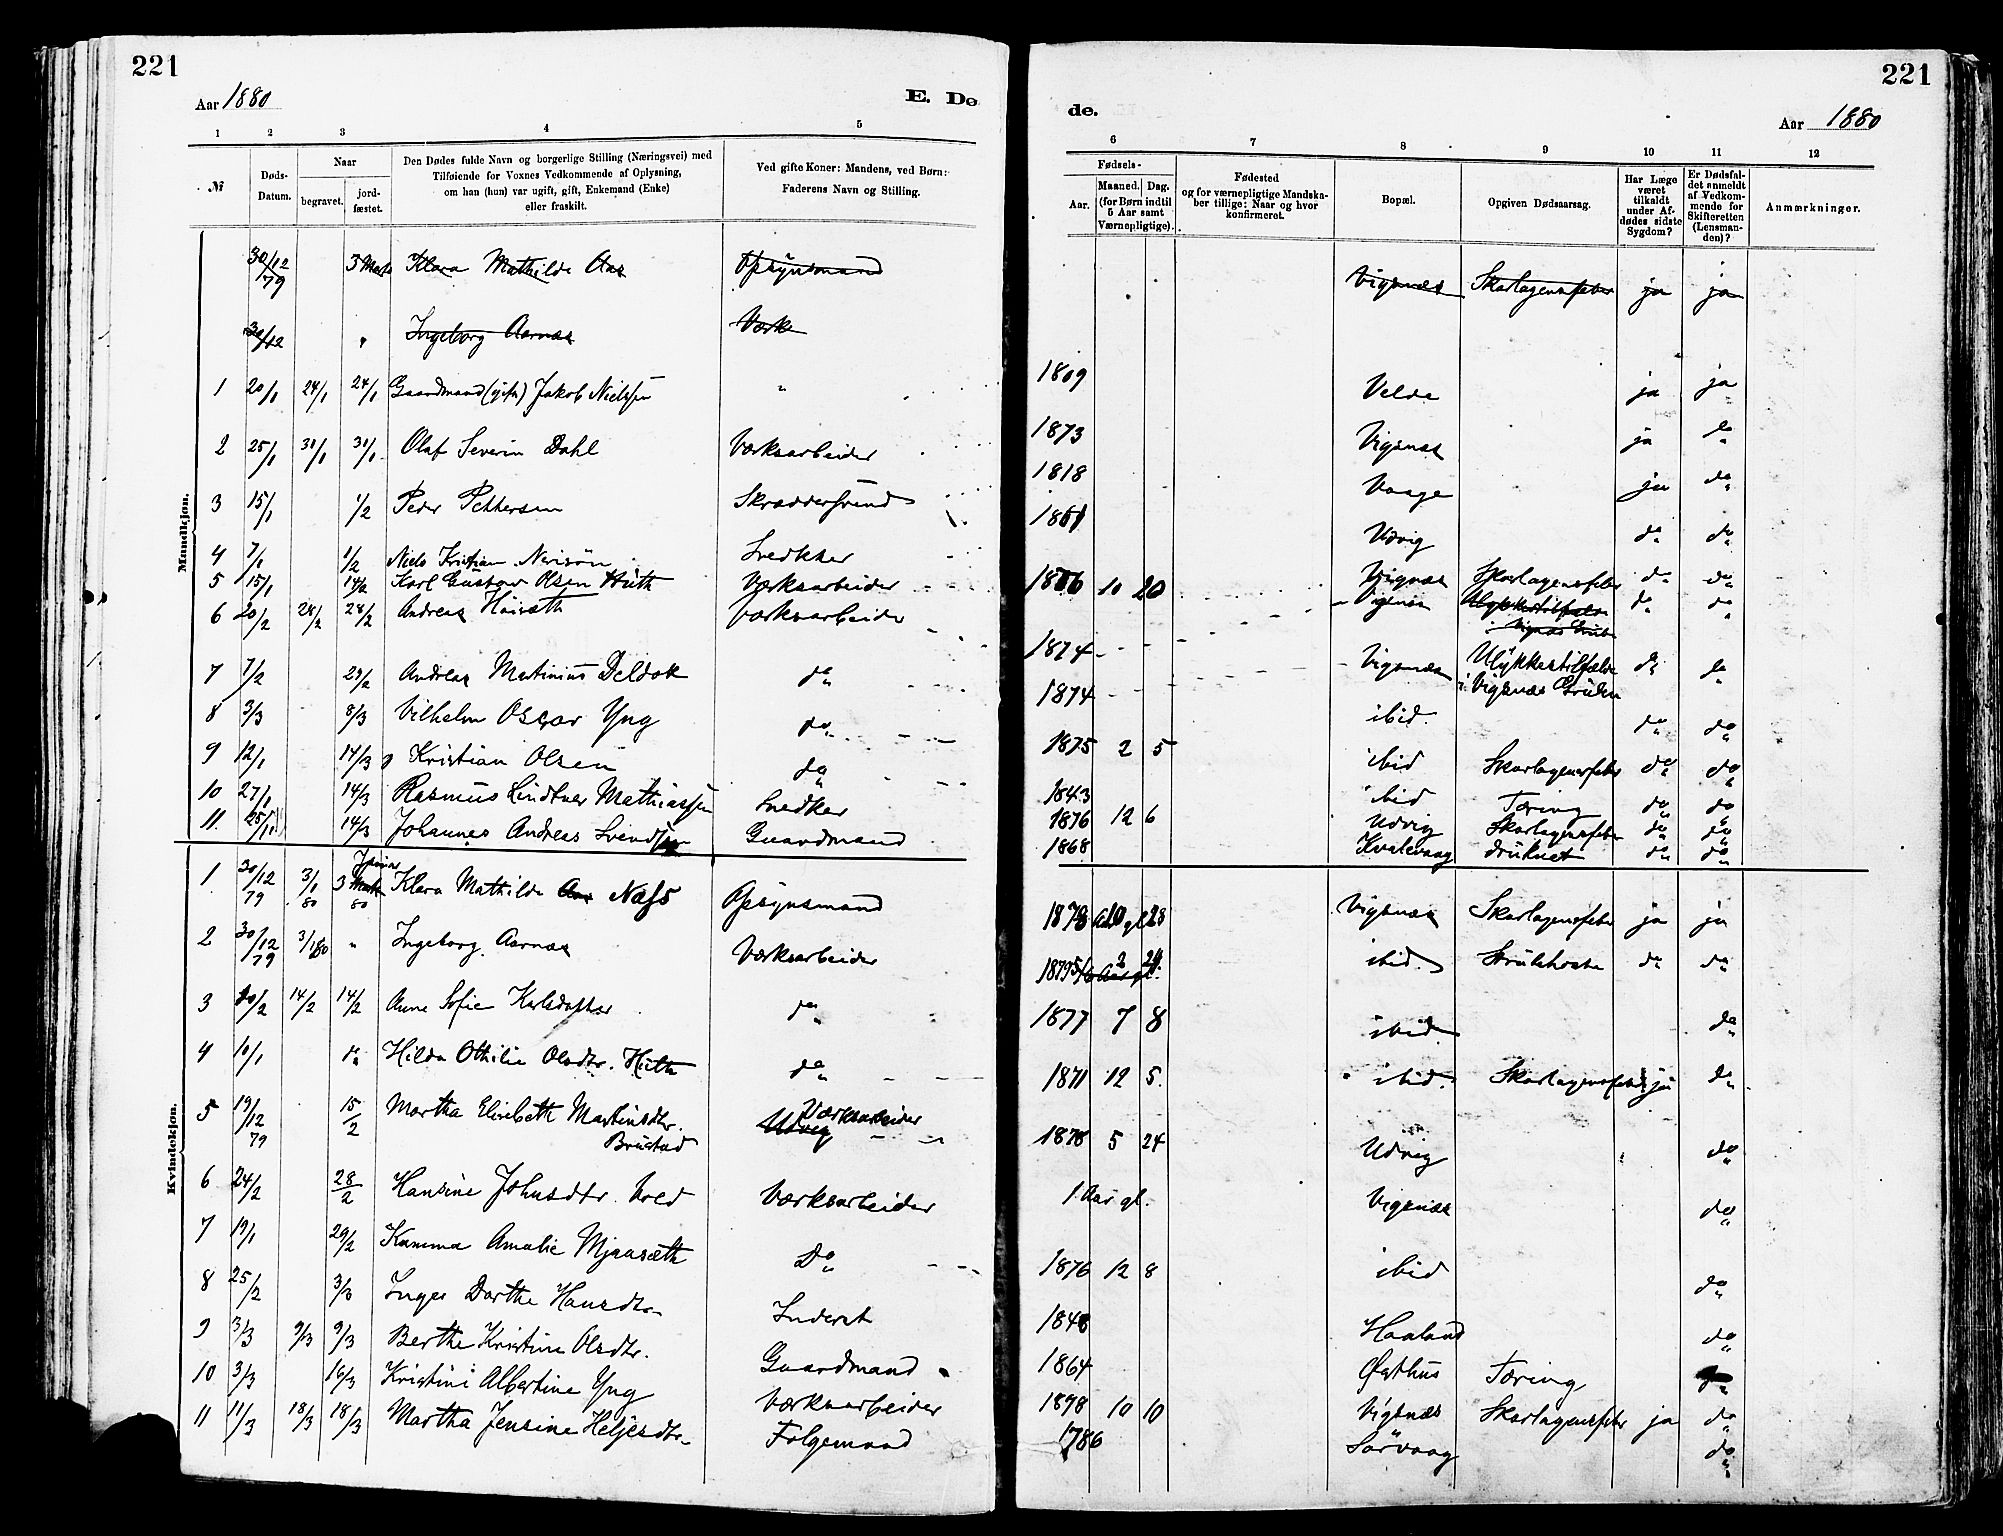 221
Aar 1880
E. De
1 2 3 4 5
№
Døds-Datum.
Naar
begravet.
jord-fæstet.
Den Dødes fulde Navn og borgerlige Stilling (Næringsvei) med
Tilføiende for Voxnes Vedkommende af Oplysning,
om han (hun) var ugift, gift, Enkemand (Enke)
eller fraskilt.
Ved gifte Koner: Mandens, ved Børn:
Faderens Navn og Stilling.
Mandkjøn.
30/12 79 3 Klara Mathilde Aas Opsynsmand
30/12 " Ingeborg Aarnæs Værks
1 20/1 24/1 24/1 Gaardmand (gift) Jakob Nielssen "
2 25/1 31/1 31/1 Olaf Severin Dahl Værksarbeider
3 15/1 1/2 Peder Pettersen
4 7/1 1/2 Niels Kristian Snedker
5 15/1 14/2 Karl Gustav Olsen Huth Værksarbeider
6 20/2 28/2 28/2 Andreas Værksarbeider
7 7/2 29/2 Andreas Martinius Deldok do
8 3/3 8/3 Vilhelm Oscar Yng do
9 12/1 14/3 Kristian Olsen do
10 27/1 14/3 Rasmus Lindtner Mathiassen Snedker
11. 25/11 14/3 Johannes Andreas Svendsen Gaardmand
Kvindekjøn.
1 30/12 79 3/1 80 3 Januar 80 Klara Mathilde Aas Næss Opsynsmand
2 30/12 79 3/1 80 " Ingeborg Aarnæs Værksarbeider
3 10/2 14/2 14/2 Anne Sofie Karlsdatter do
4 10/1 do Hilda Othilie Olsdtr. Huth do
5 19/12 79 15/2 Martha Elisabeth Martinsdtr. Værksarbeider
Brustad Udvig
6 24/2 28/2 Hansine Johnsdtr. Værksarbeider
7 19/1 29/2 Kamma Amalie Mjaasæth Do
8 25/2 Inger Dorthe Hansdtr. Inderst
9 3/3 9/3 9/3 Berthe Kristine Olsdtr. Gaardmand
10 3/3 16/3 Kristine Albertine Yng Værksarbeider
11 11/3 18/3 18/3 Martha Jensine Heljesdtr. Følgemand
221
de.
Aar 1880
6 7 8 9 10 11 12
Fødsels-
Aar.
Maaned. Dag.
(for Børn indtil
5 Aar samt
Værnepligtige).
Fødested
og for værnepligtige Mandska-
ber tillige: Naar og hvor
konfirmeret.
Bopæl.
Opgiven Dødsaarsag.
Har Læge
været
tilkaldt
under Af-
dødes sidste
Sygdom?
Er Dødsfal-
det anmeldt
af Vedkom-
mende for
Skifteretten
(Lensman-
den)?
Anmærkninger.
Vigsnæs Skarlagensfeber ja ja
1809 Velde ja ja
1873 Vigsnæs ja do
1818 Vaage ja do
Udvig do do
10 20 Vigsnæs Skarlagensfeber do do
Vigsnæs Ulykkestilfælde do do
i Vigsnæs Grube
1874 Vigsnæs Ulykkestilfælde do do
1874 i Vigsnæs Gruben
ibid. do do
1875 2 5 ibid Skarlagensfeber do do
1843 ibid Tæring do do
1876 12 6 Udvig Skarlagensfeber do do
1868 Kvalevaag druknet do do
1878 28 Vigsnæs Skarlagensfeber ja ja
1879 ibid. Strubehoste do do
1877 7 8 ibid. do
1871 12 5. ibid. Skarlagensfeber ja do
1878 5 24 Udvig do
1 Aar gl. Vigsnæs do
1876 12 8 ibid do
1848 Haaland do
1864 Østhus Tæring do
1898 10 10 Vigsnæs Skarlagensfeber ja do
1786 Sørvaag do